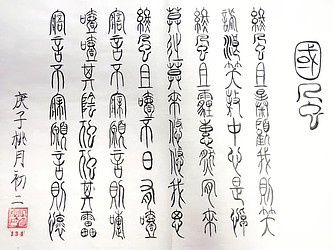 國風
終風且暴顧我則笑
謔浪笑敖中心是悼
終風且霾惠然肯來
莫往莫來悠悠我思
終風且曀不日有曀
寤言不寐願言則嚏
曀曀其陰虺虺其雷
寤言不寐願言則懷
庚子桃月初二